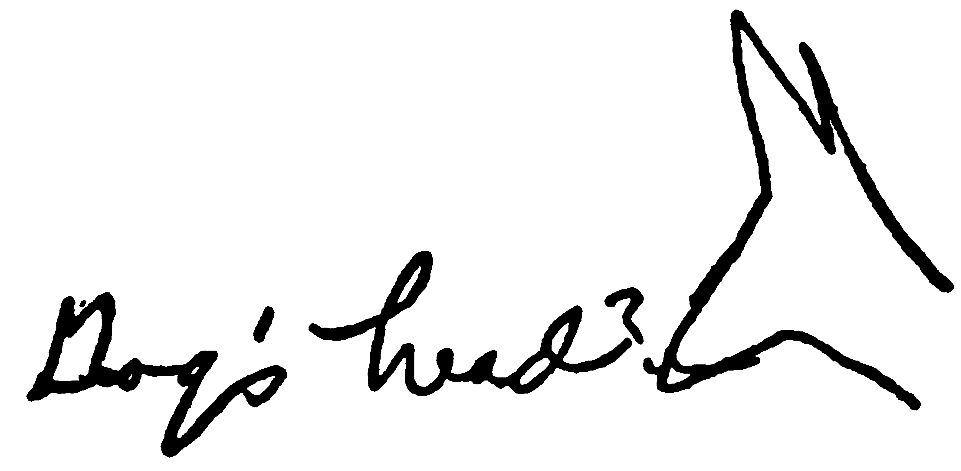 Dog's head?